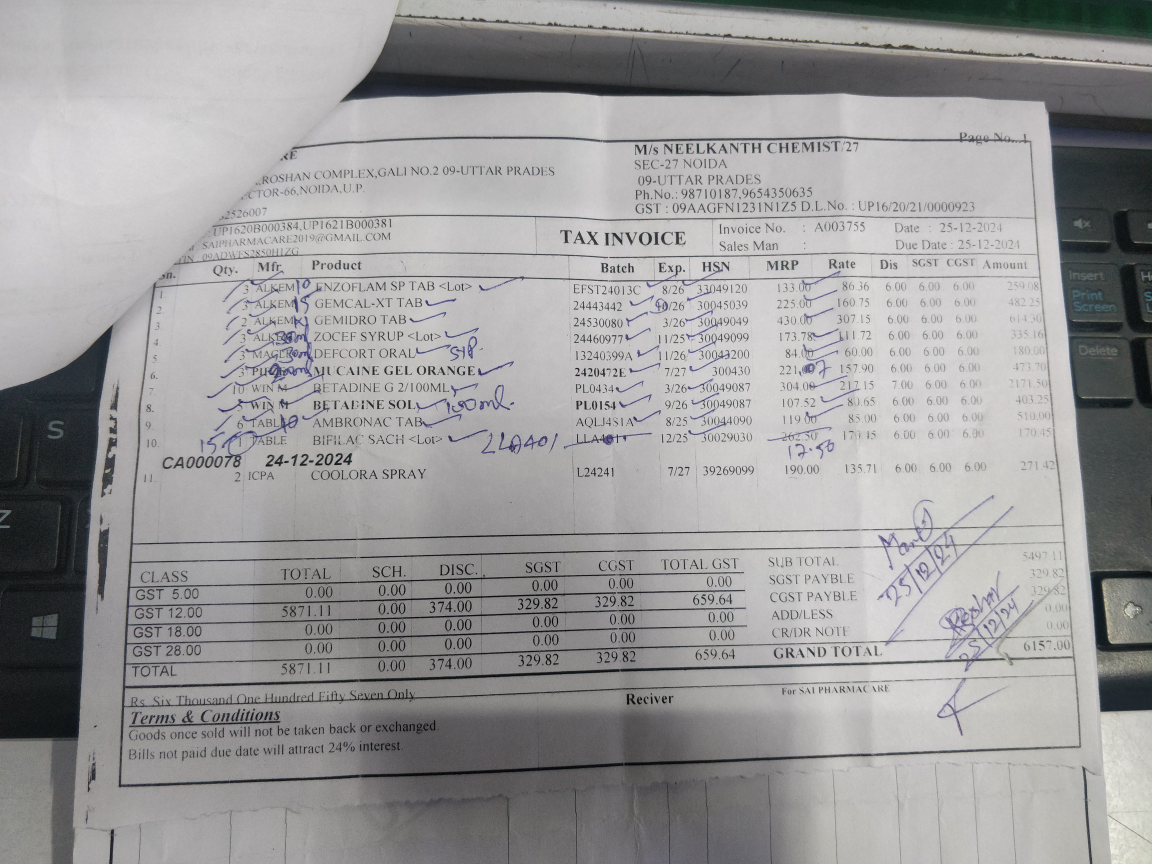 Page No..1
RE
ROSHAN COMPLEX,GALI NO.2 09-UTTAR PRADES
CTOR-66,NOIDA,U.P.
2526007
UP1620B000384,UP1621B000381
SAIPHARMACARE2019@GMAIL.COM
09ADWFS2850H1ZG
M/s NEELKANTH CHEMIST/27
SEC-27 NOIDA
09-UTTAR PRADES
Ph.No.: 98710187,9654350635
GST : 09AAGFN1231N1Z5 D.L.No.: UP16/20/21/0000923
TAX INVOICE
Invoice No. : A003755 Date : 25-12-2024
Sales Man : Due Date : 25-12-2024
Sn. Qty. Mfr. Product Batch Exp. HSN MRP Rate Dis SGST CGST Amount
1. 3 ALKEM 10 ENZOFLAM SP TAB <Lot> EFST24013C 8/26 33049120 133.00 86.36 6.00 6.00 6.00 259.08
2. 3 ALKEM 15 GEMCAL-XT TAB 24443442 10/26 30045039 225.00 160.75 6.00 6.00 6.00 482.25
3. 2 ALKEM GEMIDRO TAB 24530080 3/26 30049049 430.00 307.15 6.00 6.00 6.00 614.30
4. 3 ALKEM ZOCEF SYRUP <Lot> 24460977 11/25 30049099 173.78 111.72 6.00 6.00 6.00 335.16
5. 3 DEFCORT ORAL SYP. 13240399A 11/26 30043200 84.00 60.00 6.00 6.00 6.00 180.00
6. 3 MUCAINE GEL ORANGE 2420472E 7/27 300430 221.00 157.90 6.00 6.00 6.00 473.70
7. 10 WIN M BETADINE G 2/100ML PL0434 3/26 30049087 304.00 217.15 7.00 6.00 6.00 2171.50
8. 5 WIN M BETADINE SOL 100ml. PL0154 9/26 30049087 107.52 80.65 6.00 6.00 6.00 403.25
9. 6 TABL 10 AMBRONAC TAB AQLJ4S1A 8/25 30044090 119.00 85.00 6.00 6.00 6.00 510.00
10. 15 TABLE BIFILAC SACH <Lot> LLA0401 12/25 30029030 262.50 6.00 6.00 6.00 170.45
17.50
CA000078 24-12-2024
11 2 ICPA COOLORA SPRAY L24241 7/27 39269099 190.00 135.71 6.00 6.00 6.00 271.42
CLASS TOTAL SCH. DISC. SGST CGST TOTAL GST
GST 5.00 0.00 0.00 0.00 0.00 0.00 0.00
GST 12.00 5871.11 0.00 374.00 329.82 329.82 659.64
GST 18.00 0.00 0.00 0.00 0.00 0.00 0.00
GST 28.00 0.00 0.00 0.00 0.00 0.00 0.00
TOTAL 5871.11 0.00 374.00 329.82 329.82 659.64
SUB TOTAL 5497.11
SGST PAYBLE 329.82
CGST PAYBLE 329.82
ADD/LESS 0.00
CR/DR NOTE 0.00
GRAND TOTAL 6157.00
25/12/24
25/12/24
Rs. Six Thousand One Hundred Fifty Seven Only
Reciver
For SAI PHARMACARE
Terms & Conditions
Goods once sold will not be taken back or exchanged.
Bills not paid due date will attract 24% interest.
S
Z
Insert
Print Screen
Delete